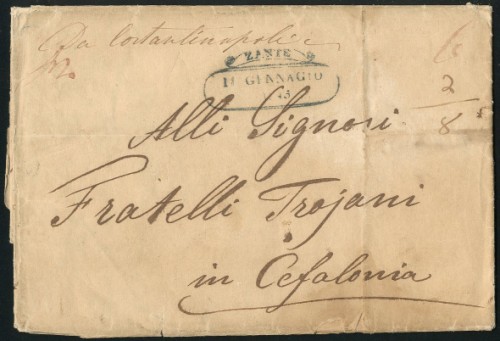 Da Costantinopoli
ZANTE
11 GENNAGIO
2
8
Alli Signori
Fratelli Trojani
in Cefalonia